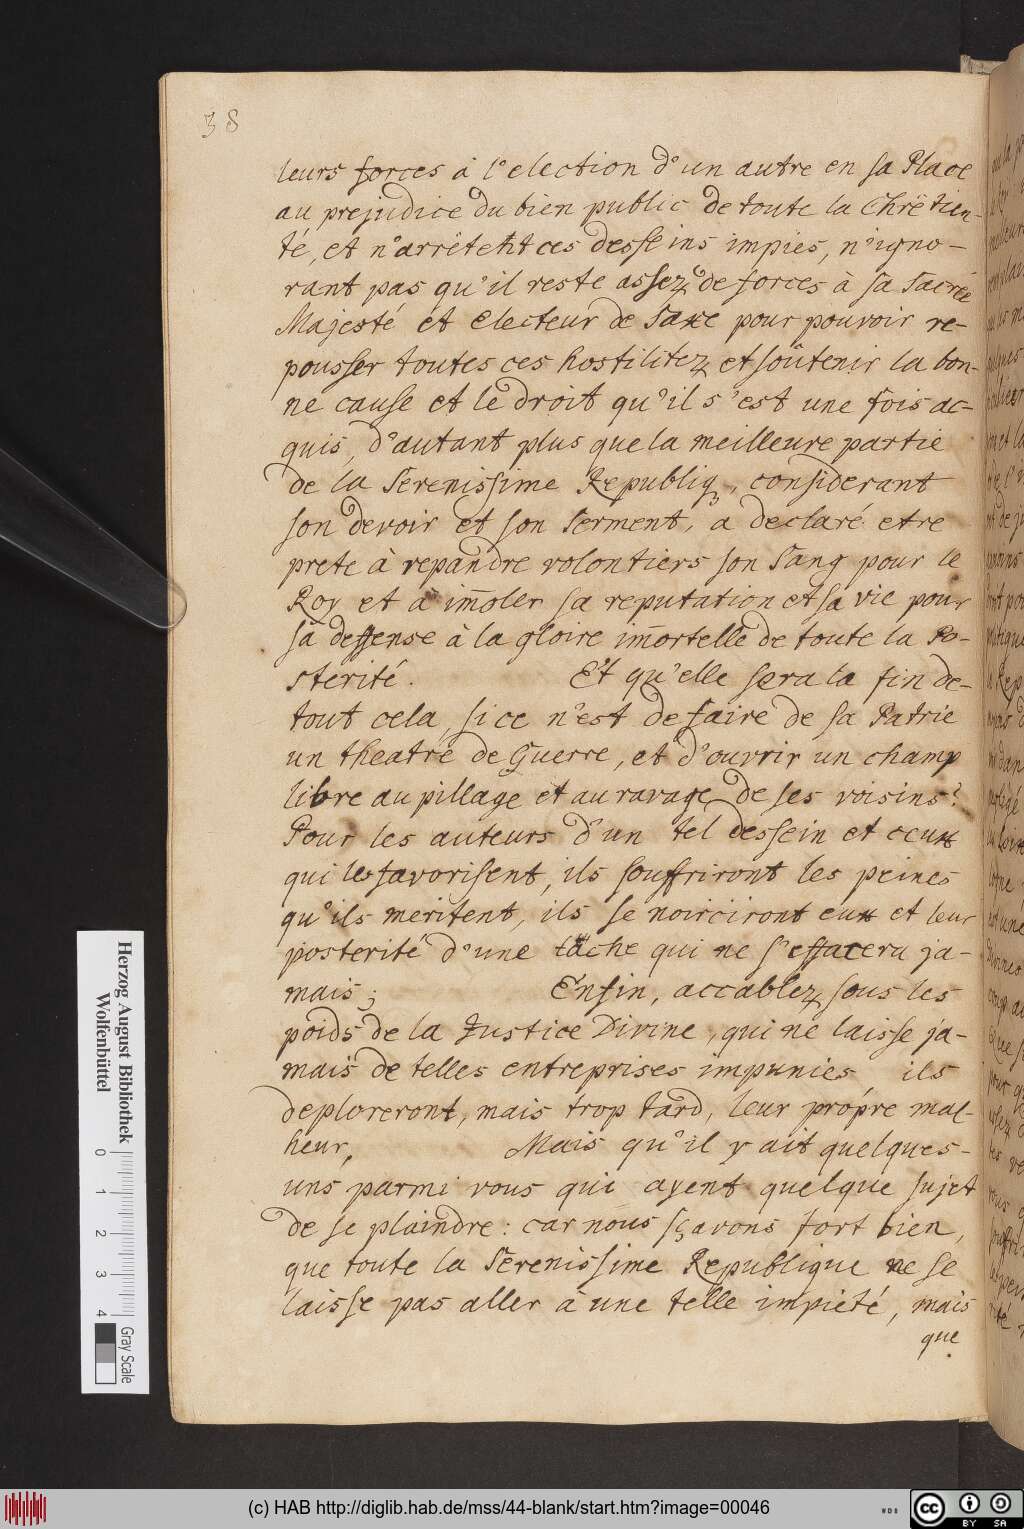 38
leurs forces à l'election d'un autre en sa Place
au prejudice du bien public de toute la Chrêtien-
té, et n'arrêtent ces desseins impies, n'igno-
rant pas qu'il reste assez de forces à sa Sacrée
Majesté et Electeur de Saxe pour pouvoir re-
pousser toutes ces hostilitez et soûtenir la bon-
ne cause et le droit qu'il s'est une fois ac-
quis, d'autant plus que la meilleure partie
de la Serenissime Republiq, considerant
son devoir et son Serment, a declaré etre
prete à repandre volontiers son Sang pour le
Roy et à im̄oler sa reputation et sa vie pour
sa deffense à la gloire im̄ortelle de toute la Po-
sterité. Et qu'elle sera la fin de-
tout cela, si ce n'est de faire de sa Patrie
un theatre de Guerre, et d'ouvrir un champ
libre au pillage et au ravage de ses voisins?
Pour les auteurs d'un tel dessein et ceux
qui les favorisent, ils souffriront les peines
qu'ils meritent, ils se noirciront eux et leur
posterité d'une tâche qui ne s'effacera ja-
mais; Enfin, accablez sous les
poids de la Justice Divine, qui ne laisse ja-
mais de telles entreprises impunies ils
deploreront, mais trop tard, leur propre mal-
heur, Mais qu'il y ait quelques-
uns parmi vous qui ayent quelque sujet
de se plaindre: car nous sçavons fort bien,
que toute la Serenissime Republique ne se
laisse pas aller à une telle impieté, mais
que
Herzog August Bibliothek
Wolfenbüttel
0 1 2 3 4
Gray Scale
(c) HAB http://diglib.hab.de/mss/44-blank/start.htm?image=00046
WDB
cc BY SA